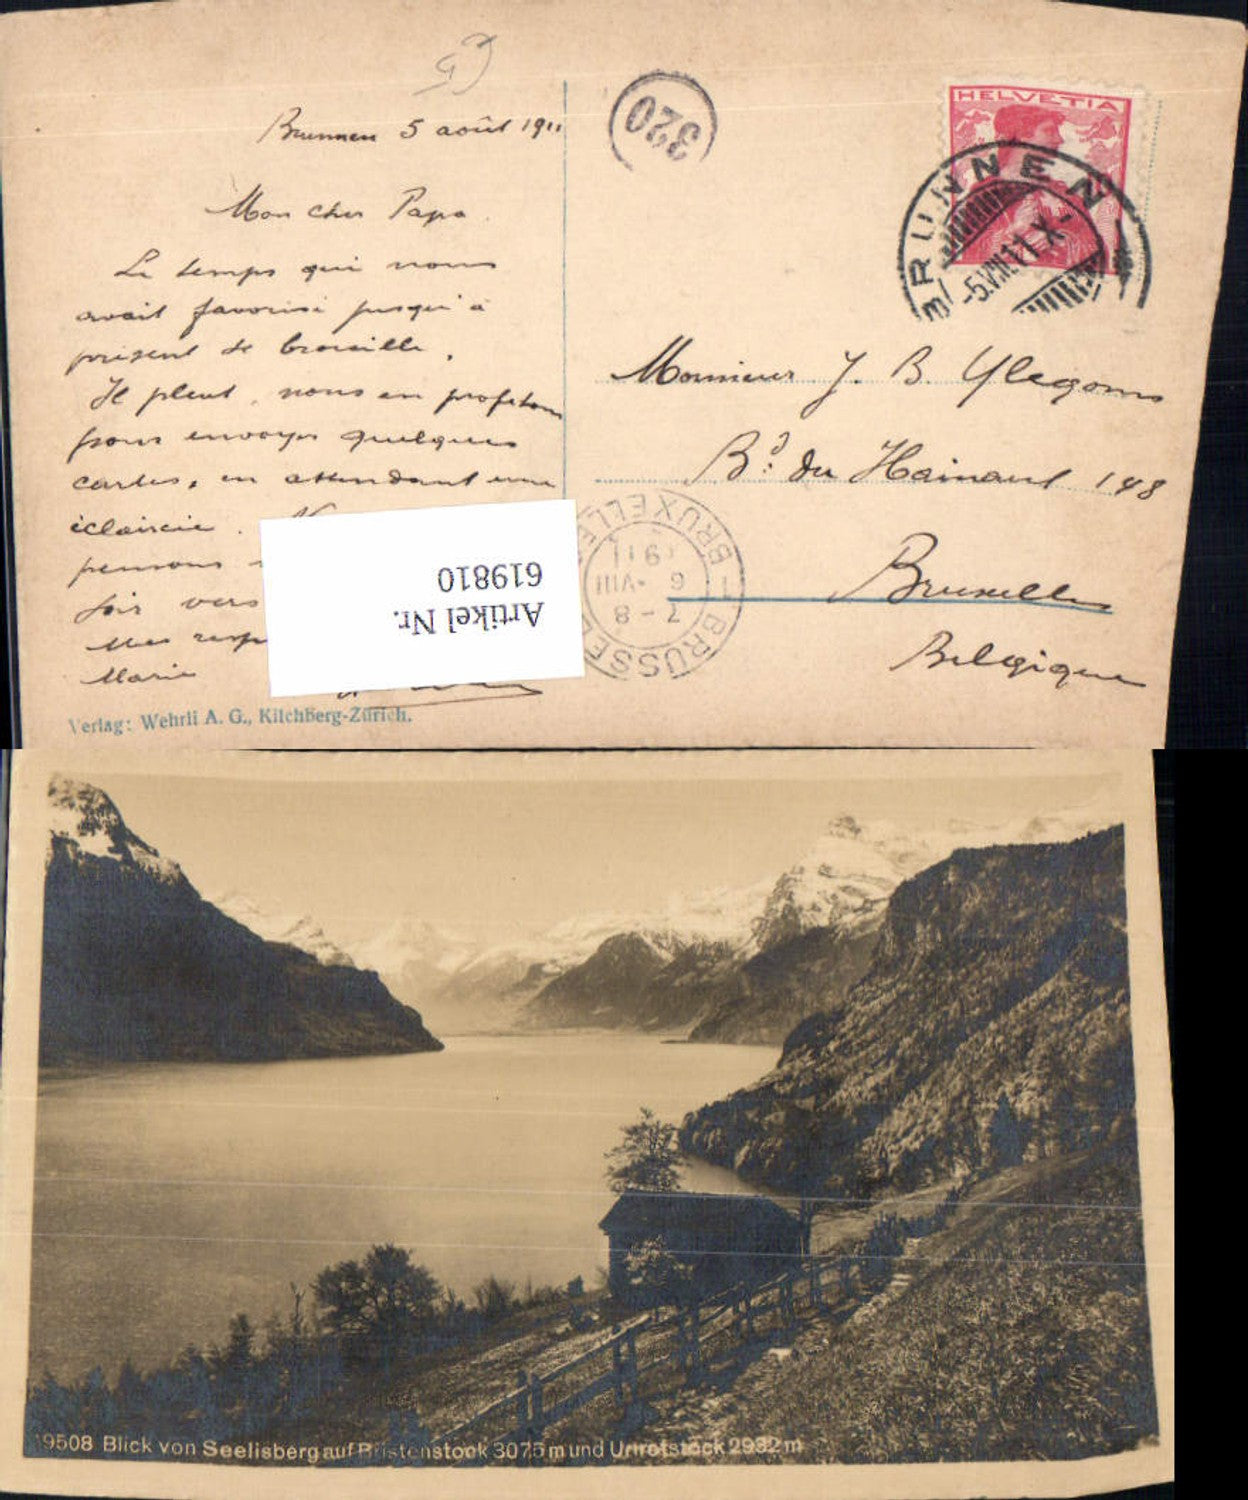 Brunnen 5 août 1911
Mon cher Papa.
Le temps qui nous
avait favorisé jusqu'à
présent se brouille.
Il pleut, nous en profitons
pour envoyer quelques
cartes, en attendant une
éclaircie.
pensons
soir vers
Mes resp
Marie
Verlag: Wehrli A. G., Kilchberg-Zürich.
320
HELVETIA
BRUNNEN
-5.VIII.11.X-
Monsieur J. B. Ylegoms
Bd: du Hainaut 148
Bruxelles
Belgique
1 BRUXELLES
1911
6 -VIII
7-8
1 BRUSSEL
Artikel Nr.
619810
19508 Blick von Seelisberg auf Bristenstock 3075 m und Urirotstock 2932 m